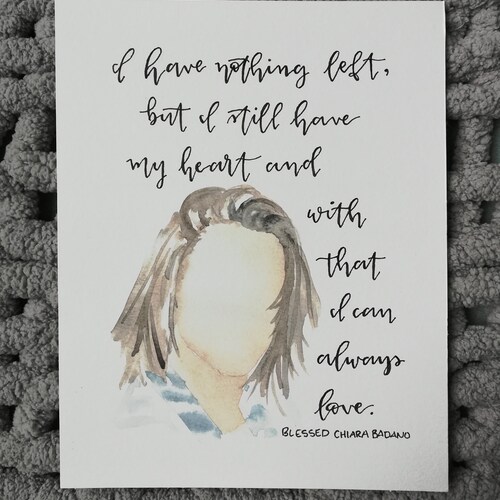 I have nothing left,
but I still have
my heart and
with
that
I can
always
love.
BLESSED CHIARA BADANO